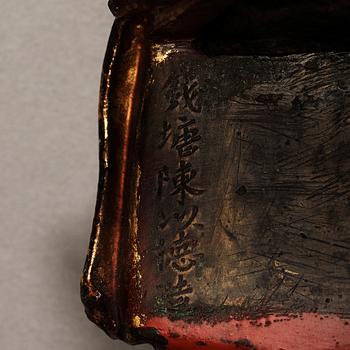 錢塘陳以德造